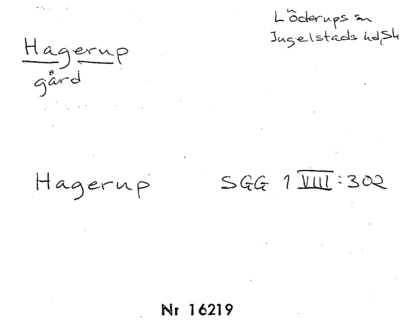 Hagerup
gård
Löderups sn
Ingelstads hd, Sk
Hagerup SGG 1 VIII:302
Nr 16219